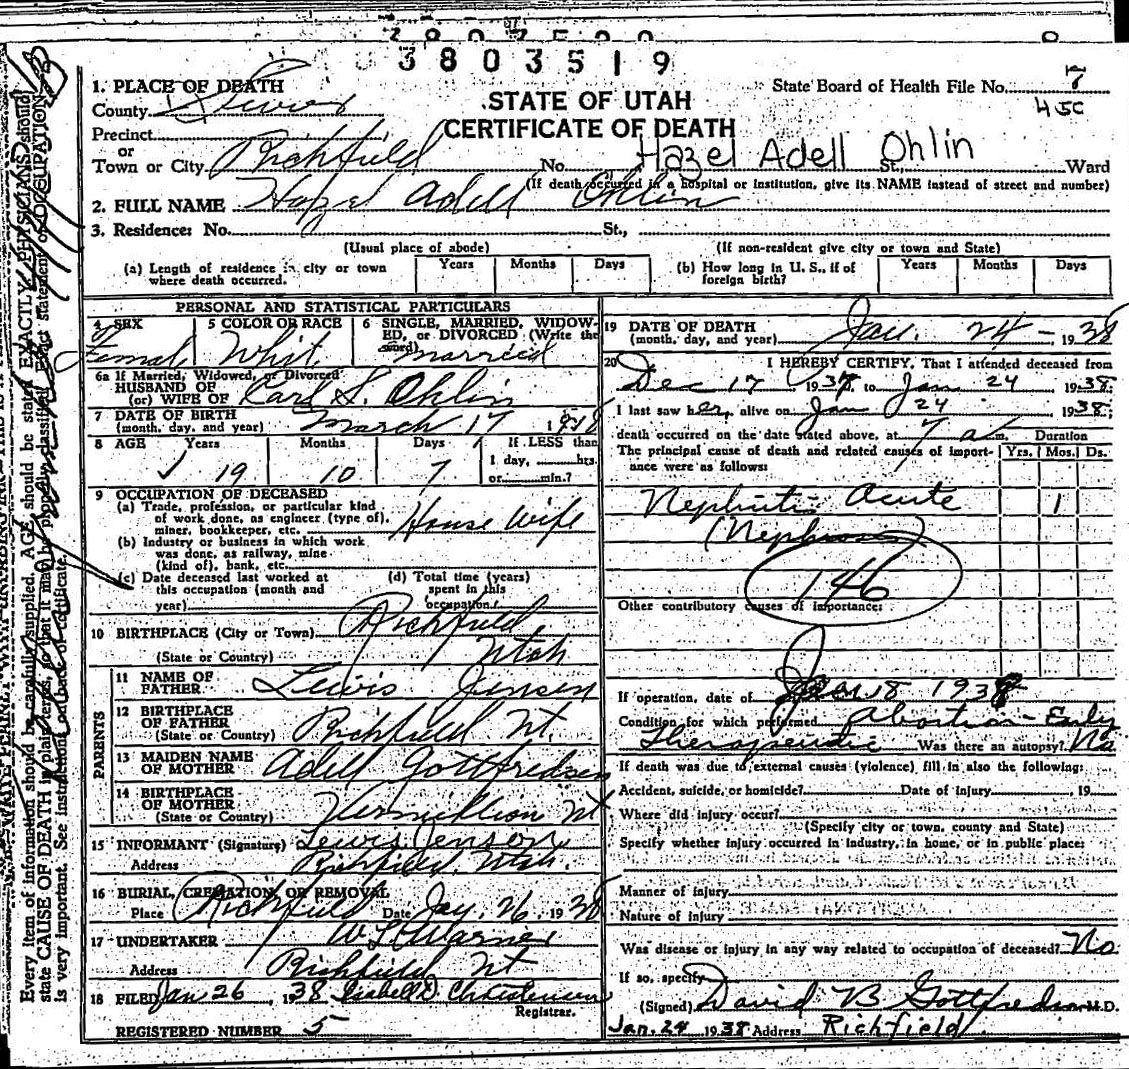 3803519
1. PLACE OF DEATH
County Sevier
STATE OF UTAH
CERTIFICATE OF DEATH
State Board of Health File No. 7
45C
Precinct
or
Town or City Richfield No. St., Ward
Hazel Adell Ohlin
(If death occurred in a hospital or institution, give its NAME instead of street and number)
2. FULL NAME Hazel Adell Ohlin
3. Residence: No. St.,
(Usual place of abode) (If non-resident give city or town and State)
(a) Length of residence in city or town where death occurred. Years Months Days
(b) How long in U. S., if of foreign birth? Years Months Days
PERSONAL AND STATISTICAL PARTICULARS
4 SEX Female
5 COLOR OR RACE White
6 SINGLE, MARRIED, WIDOWED, or DIVORCED (Write the word) Married
6a If Married, Widowed, or Divorced
HUSBAND OF
(or) WIFE OF Carl S. Ohlin
7 DATE OF BIRTH
(month, day, and year) March 17 1918
8 AGE Years 19 Months 10 Days 7 If LESS than
1 day, hrs.
or min.?
9 OCCUPATION OF DECEASED
(a) Trade, profession, or particular kind
of work done, as engineer (type of),
miner, bookkeeper, etc. House Wife
(b) Industry or business in which work
was done, as railway, mine
(kind of), bank, etc.
(c) Date deceased last worked at
this occupation (month and
year)
(d) Total time (years)
spent in this
occupation
10 BIRTHPLACE (City or Town) Richfield
(State or Country) Utah
PARENTS
11 NAME OF
FATHER Lewis Jensen
12 BIRTHPLACE
OF FATHER
(State or Country) Richfield Ut.
13 MAIDEN NAME
OF MOTHER Adell Gottfredsen
14 BIRTHPLACE
OF MOTHER
(State or Country) Vermillion Ut
15 INFORMANT (Signature) Lewis Jenson
Address Richfield, Utah.
16 BURIAL, CREMATION, OR REMOVAL
Place Richfield Date Jan. 26, 1938
17 UNDERTAKER
Address Richfield, Ut
18 FILED Jan 26, 1938 Isabell D. Christensen
Registrar.
REGISTERED NUMBER 5
19 DATE OF DEATH
(month, day, and year) Jan. 24 - 1938
20 I HEREBY CERTIFY, That I attended deceased from
Dec 17 1937, to Jan 24 1938;
I last saw her alive on Jan 24 1938;
death occurred on the date stated above, at 7 a m.
Duration
The principal cause of death and related causes of importance were as follows:
Yrs. Mos. Ds.
Nephritis Acute 1
(Nephrosis)
146
Other contributory causes of importance:
If operation, date of Jan 8 1938
Condition for which performed Abortion - Early
Therapeutic Was there an autopsy? No
If death was due to external causes (violence) fill in also the following:
Accident, suicide, or homicide? Date of injury , 19
Where did injury occur?
(Specify city or town, county and State)
Specify whether injury occurred in industry, in home, or in public place:
Manner of injury
Nature of injury
Was disease or injury in any way related to occupation of deceased? No
If so, specify
(Signed) David B Gottfredson M.D.
Jan. 24 1938 Address Richfield.
Every item of information should be carefully supplied. AGE should be stated EXACTLY. PHYSICIANS should
state CAUSE OF DEATH in plain terms, so that it may be properly classified. Exact statement of OCCUPATION
is very important. See instructions on back of certificate.